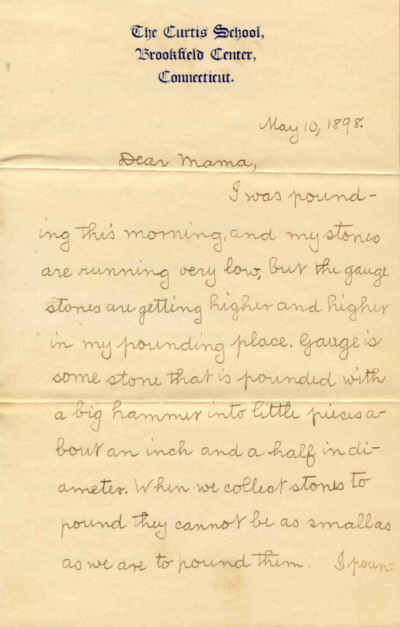 The Curtis School,
Brookfield Center,
Connecticut.
May 10, 1898.
Dear Mama,
I was pound-
ing this morning, and my stones
are running very low, but the gauge
stones are getting higher and higher
in my pounding place. Gauge is
some stone that is pounded with
a big hammer into little pieces a-
bout an inch and a half in di-
ameter. When we collect stones to
pound they cannot be as small as
as we are to pound them. I poun-